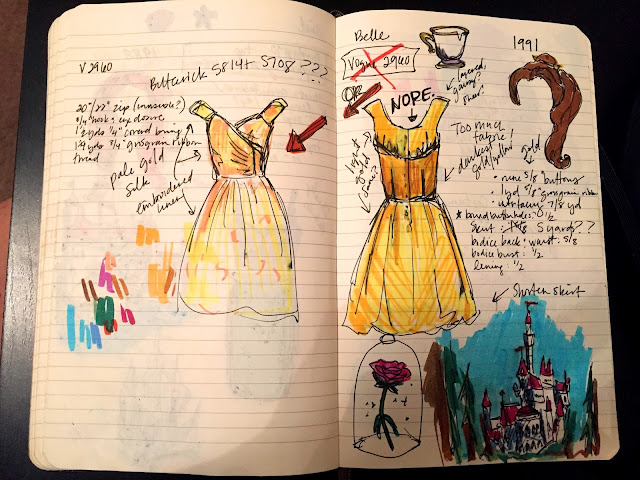 V2960
Butterick 5814 + 5708 ???
20"/22" zip (invisible?)
3/4" hook & eye closure
1 1/2 yds 1/4" boning
1 1/4 yds 3/4" grosgrain ribbon
thread
pale gold
silk
embroidered
lining
Belle
Vogue 2960
1991
OR
NOPE.
layered,
gauzy?
light
gold
Too much
fabric!
darkest
gold/yellow
gold
• nine 5/8" buttons
• 1 yd 5/8" grosgrain ribbon
• interfacing 7/8 yd
* bound buttonholes: 1/2
Skirt: 5 yards??
bodice back + waist: 5/8
bodice bust: 1/2
lining: 1/2
Shorten skirt